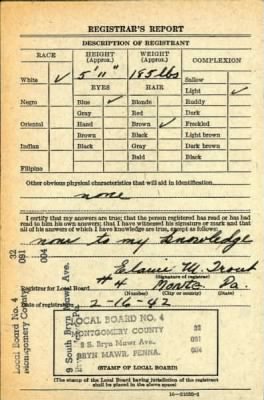 REGISTRAR'S REPORT
DESCRIPTION OF REGISTRANT
RACE HEIGHT (Approx.) WEIGHT (Approx.) COMPLEXION
White ✓ 5' 11" 185 lbs Sallow
EYES HAIR Light ✓
Negro Blue ✓ Blonde Ruddy
Gray Red Dark
Oriental Hazel Brown ✓ Freckled
Brown Black Light brown
Indian Black Gray Dark brown
Bald Black
Filipino
Other obvious physical characteristics that will aid in identification
none
I certify that my answers are true; that the person registered has read or has had
read to him his own answers; that I have witnessed his signature or mark and that
all of his answers of which I have knowledge are true, except as follows:
none to my knowledge
Elaine M. Trout
(Signature of registrar)
Registrar for Local Board #4 Montg Pa.
(Number) (City or county) (State)
Date of registration 2-16-42
LOCAL BOARD NO. 4
MONTGOMERY COUNTY
9 S. Bryn Mawr Ave.
BRYN MAWR, PENNA.
32
091
004
(STAMP OF LOCAL BOARD)
(The stamp of the Local Board having jurisdiction of the registrant
shall be placed in the above space)
Local Board No. 4 32
Montgomery County 091
004
9 South Bryn Mawr Ave.